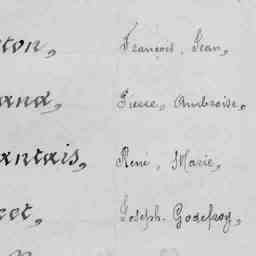 ton, François, Jean,
and, Pierre, Ambroise,
antais, René, Marie,
cot, Joseph, Godefroy,